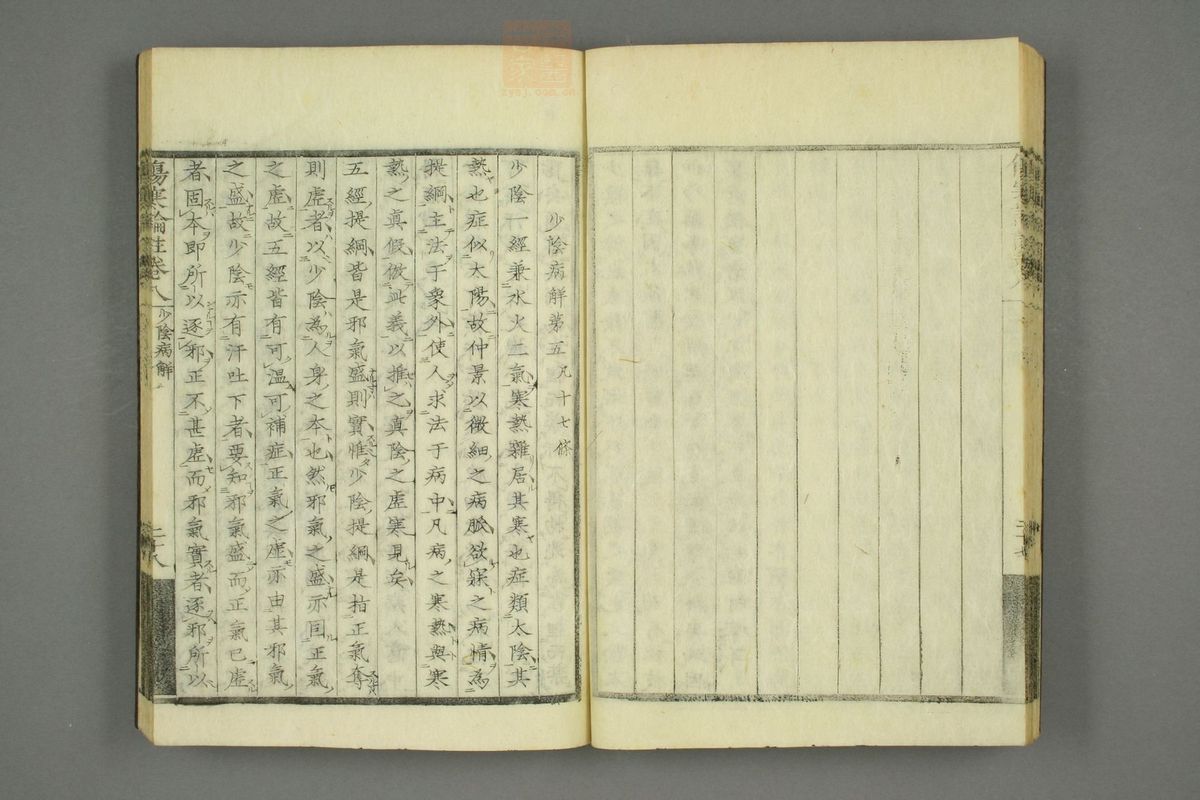 少陰病解第五凡十七條
少陰一經兼水火二氣寒熱雜居其寒也症類太陰其
熱也症似太陽故仲景以微細之病脈欲寐之病情為
提綱主法于衆外使人求法于病中凡病之寒熱與寒
熱之真假倣此義以推之真陰之虛寒見矣
五經提綱皆是邪氣盛則實惟少陰提綱是指正氣奪
則虛者以少陰為人身之本也然邪氣之盛亦因正氣
之虛故五經皆有可溫可補症正氣之虛亦由其邪氣
之盛故少陰亦有汗吐下者要知邪氣盛而正氣已虛
者固本即所以逐邪正不甚虛而邪氣實者逐邪所以
傷寒論註卷八 少陰病解 二十八
zysj.com.cn